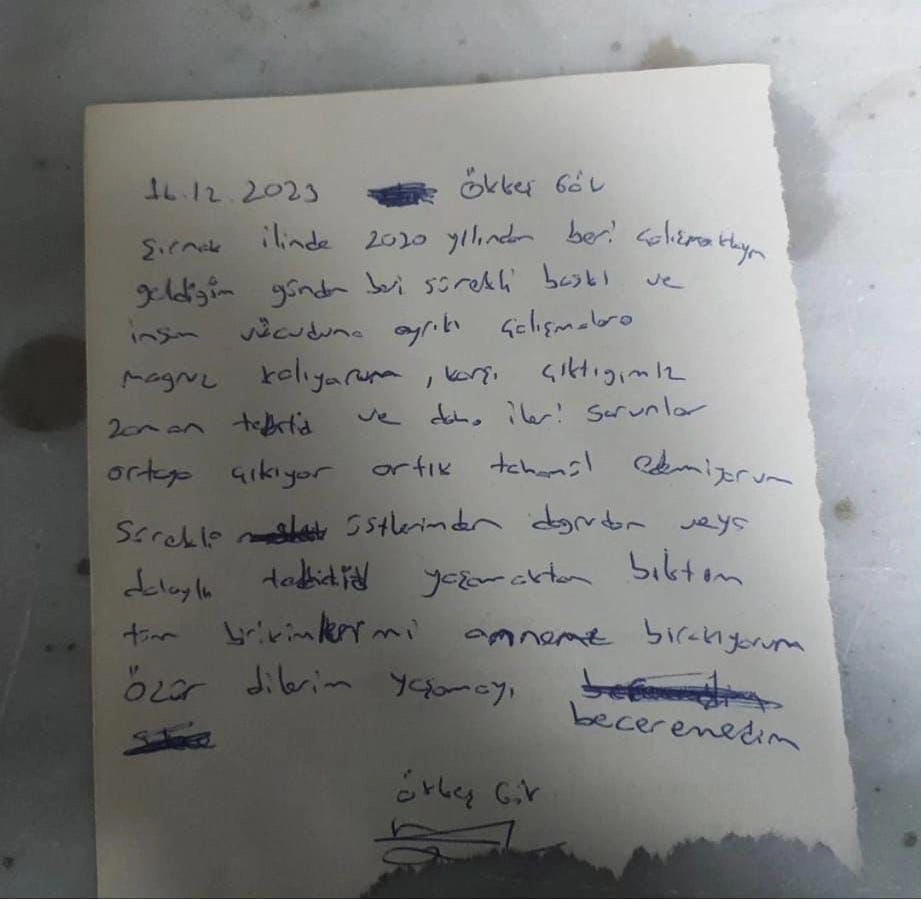 16.12.2023 Ökkeş Gör
Şırnak ilinde 2020 yılından beri çalışmaktayım
geldiğim günden beri sürekli baskı ve
insan vücuduna aykırı çalışmalara
magruz kalıyorum, karşı çıktığımız
zaman tehtid ve daha ileri sorunlar
ortaya çıkıyor artık tahamül edemiyorum
Sürekli üstlerimden doğrudan veya
dolaylı tehtid yaşamaktan bıktım
tüm birikimlerimi anneme bırakıyorum
Özür dilerim yaşamayı
beceremedim
Ökkeş Gör